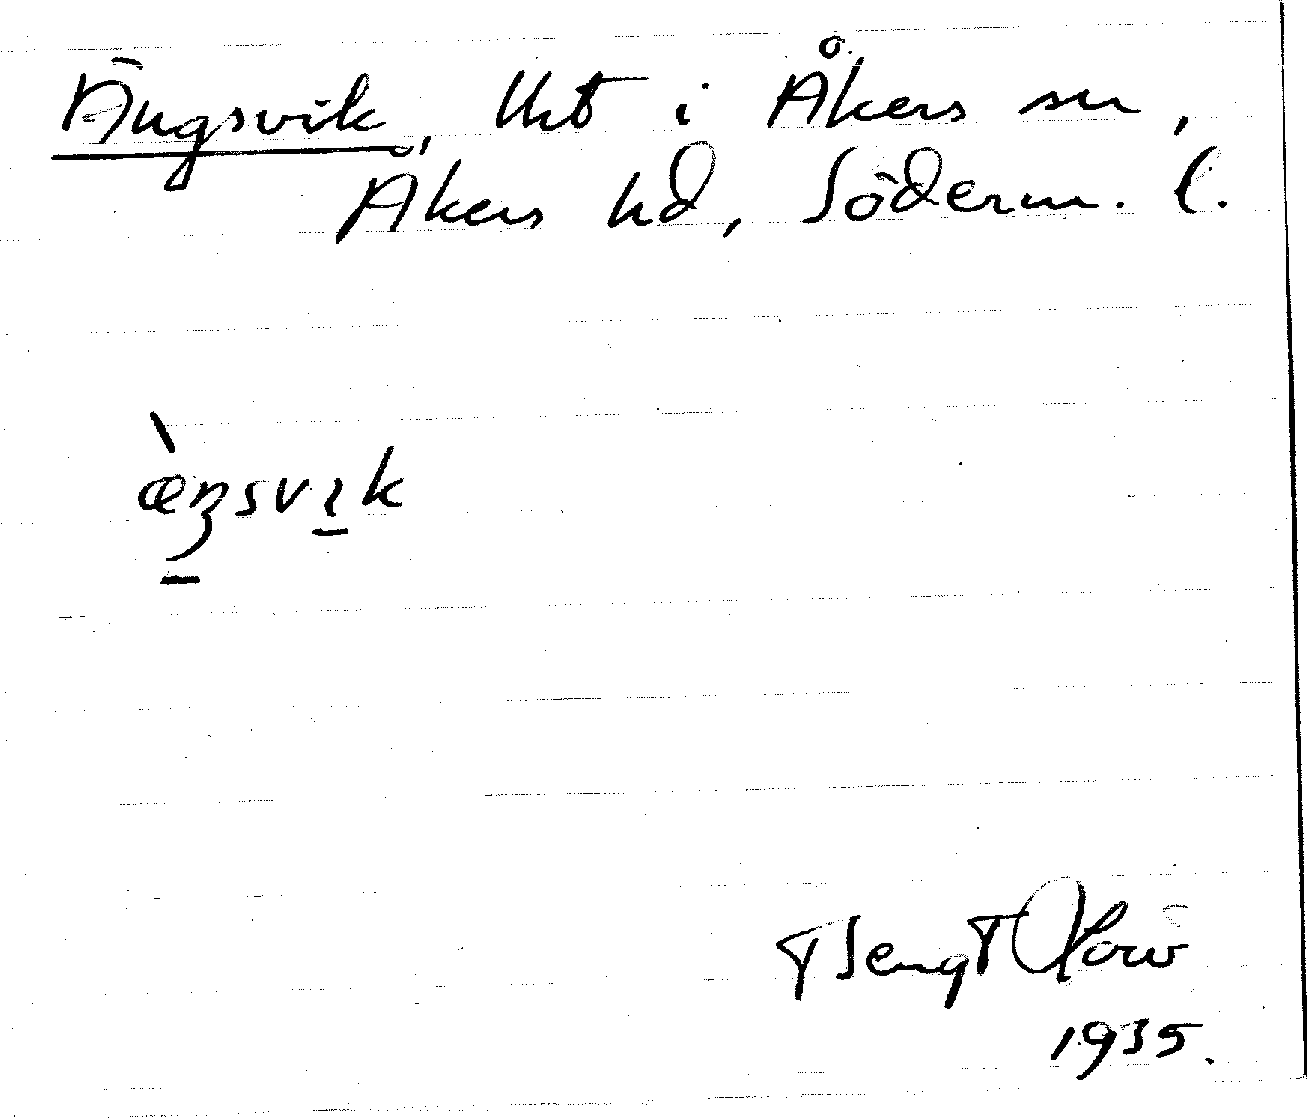 Ängsvik, tht i Åkers sn,
Åkers hd, Söderm. l.
æ̀ŋsvık
Bengt Olow
1935.